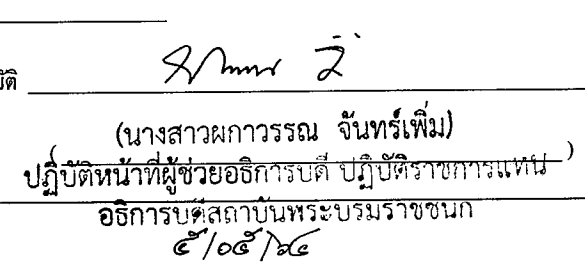 บัติ
(นางสาวผกาวรรณ จันทร์เพิ่ม)
( )
ปฏิบัติหน้าที่ผู้ช่วยอธิการบดี ปฏิบัติราชการแทน
อธิการบดีสถาบันพระบรมราชชนก